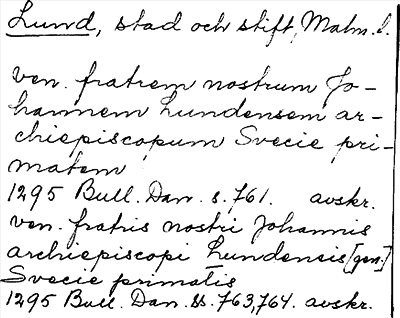 Lund, stad och stift, Malm. l.
ven. fratrem nostrum Jo-
hannem Lundensem ar-
chiepiscopum Svecie pri-
matem
1295 Bull. Dan. s. 761. avskr.
ven. fratris nostri Johannis
archiepiscopi Lundensis [gen.]
Svecie primatis
1295 Bull. Dan. ss. 763, 764. avskr.